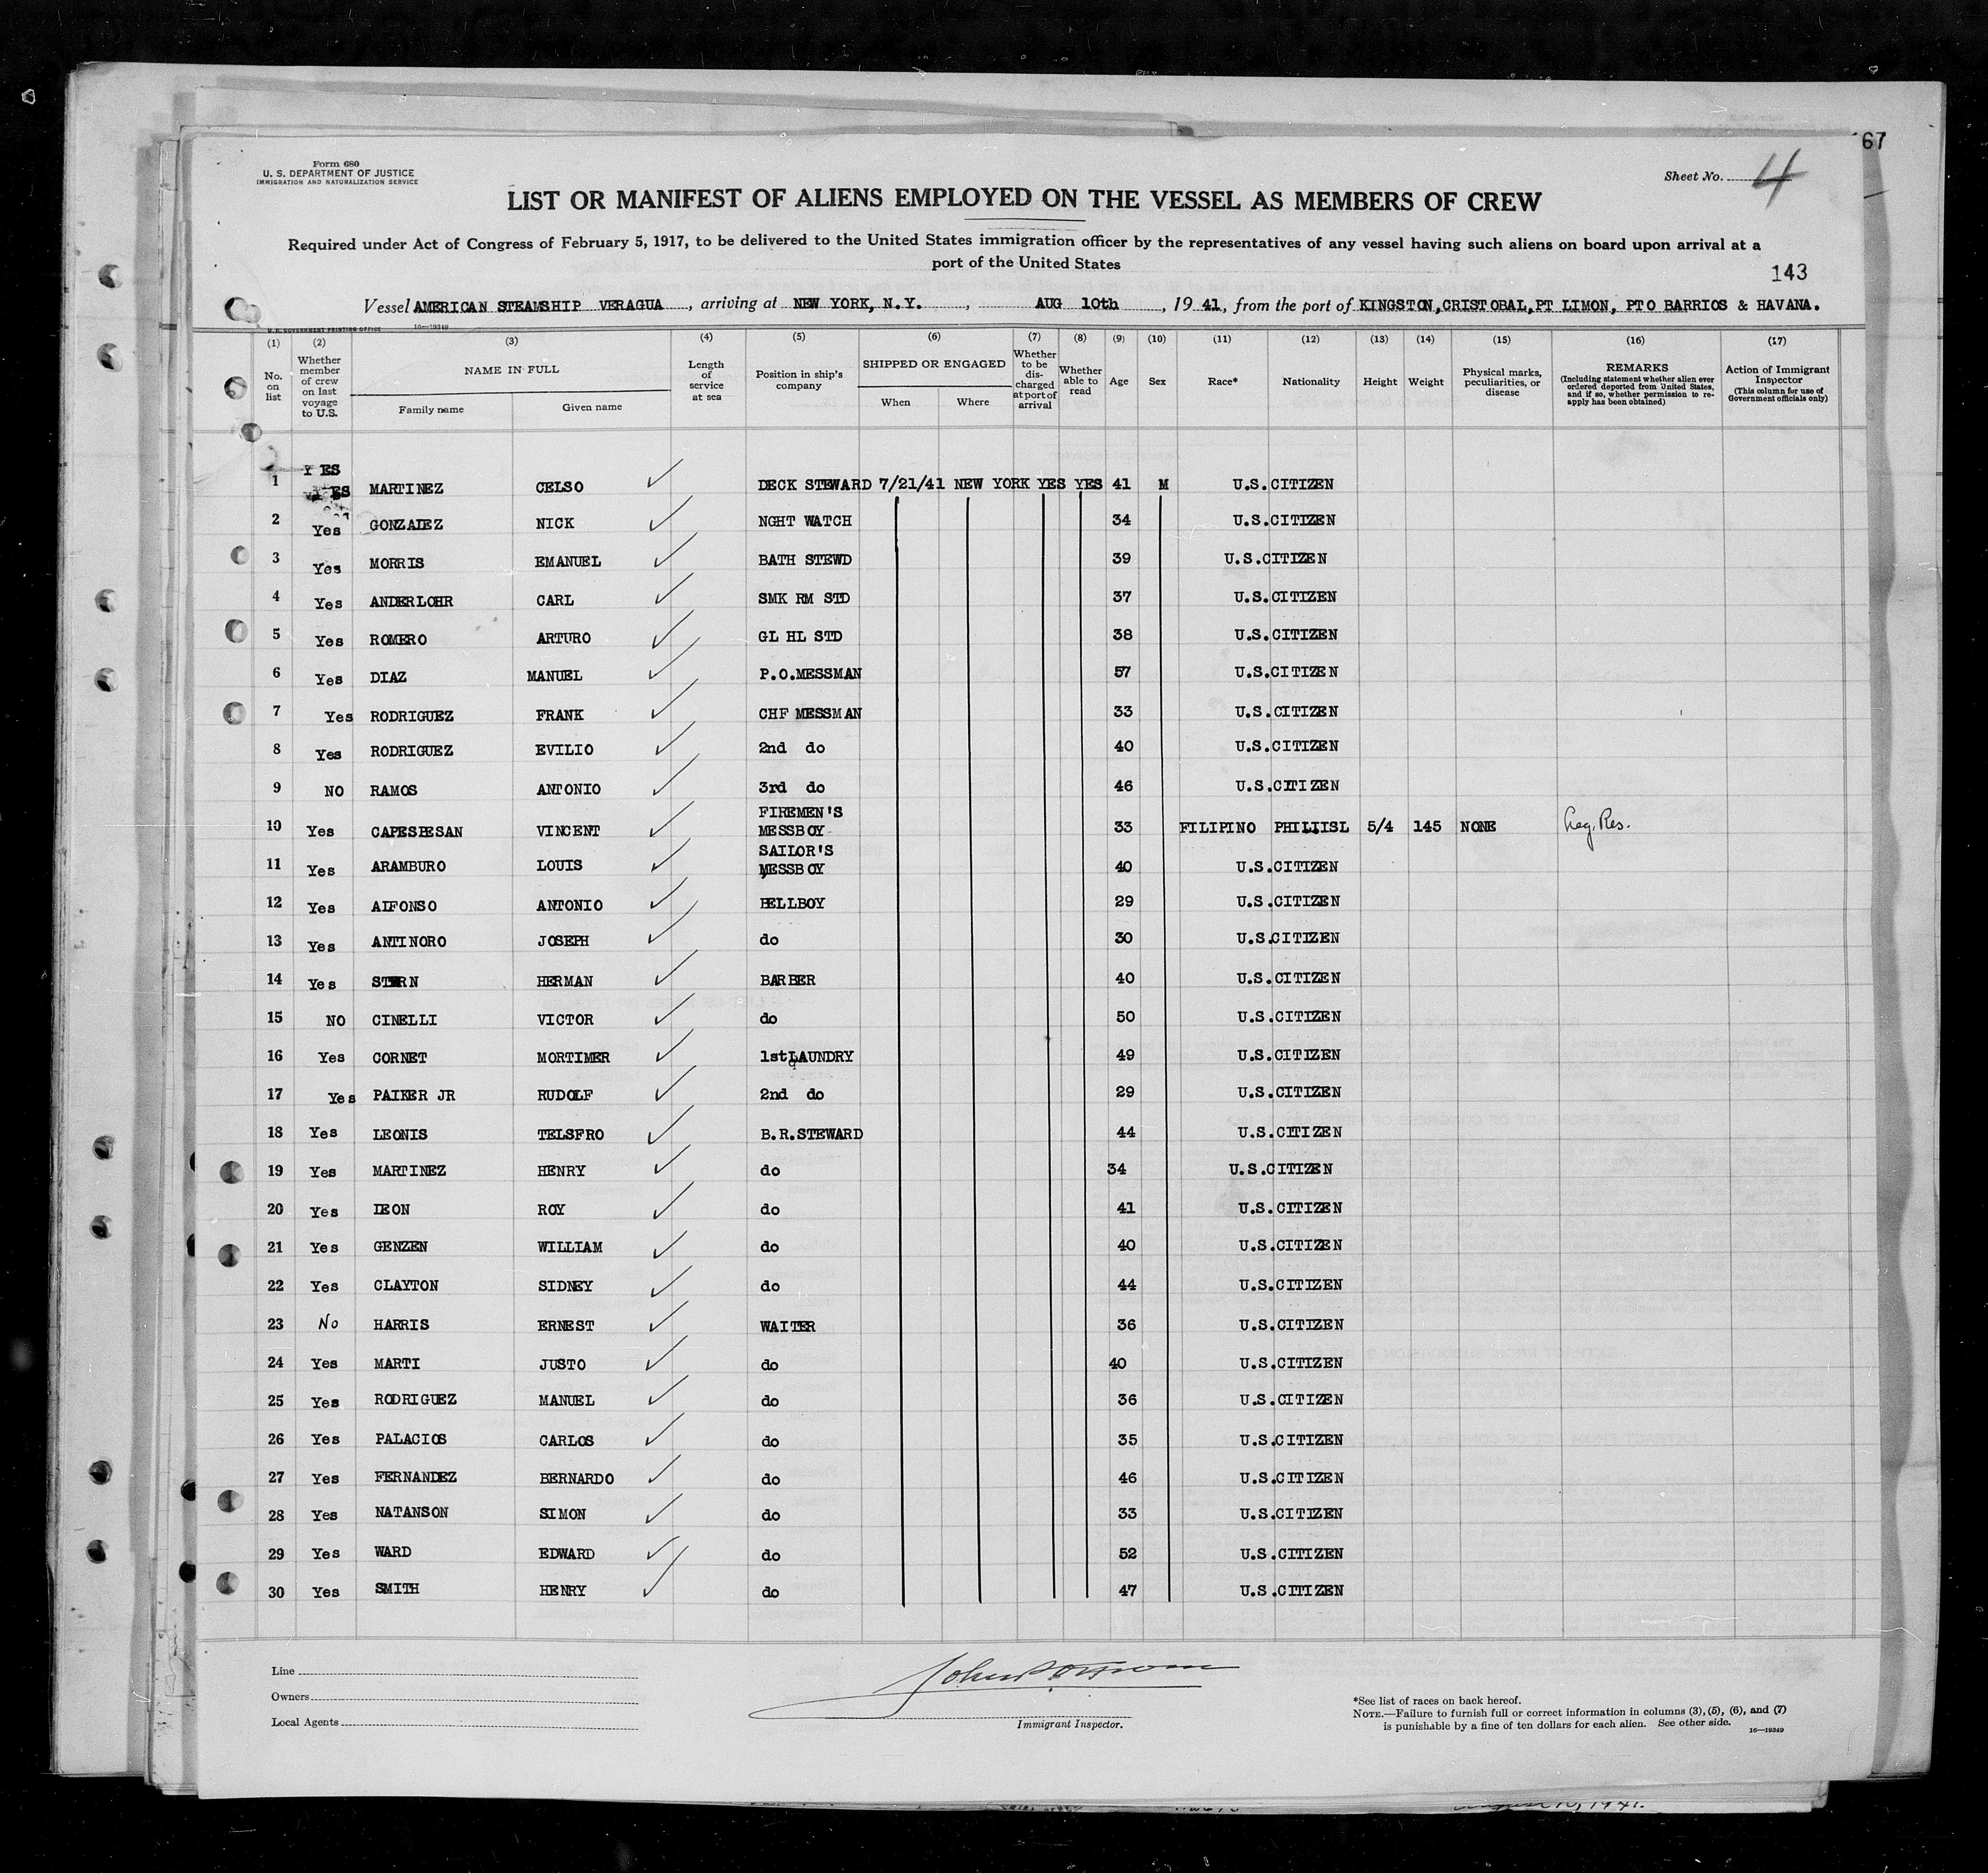 67
Form 680
U. S. DEPARTMENT OF JUSTICE
IMMIGRATION AND NATURALIZATION SERVICE
Sheet No. 4
LIST OR MANIFEST OF ALIENS EMPLOYED ON THE VESSEL AS MEMBERS OF CREW
Required under Act of Congress of February 5, 1917, to be delivered to the United States immigration officer by the representatives of any vessel having such aliens on board upon arrival at a
port of the United States
143
Vessel AMERICAN STEAMSHIP VERAGUA, arriving at NEW YORK, N.Y., AUG 10th, 1941, from the port of KINGSTON,CRISTOBAL,PT LIMON, PTO BARRIOS & HAVANA.
U. S. GOVERNMENT PRINTING OFFICE 16—19349
(1) No. on list
(2) Whether member of crew on last voyage to U.S.
(3) NAME IN FULL Family name Given name
(4) Length of service at sea
(5) Position in ship's company
(6) SHIPPED OR ENGAGED When Where
(7) Whether to be discharged at port of arrival
(8) Whether able to read
(9) Age
(10) Sex
(11) Race*
(12) Nationality
(13) Height
(14) Weight
(15) Physical marks, peculiarities, or disease
(16) REMARKS (Including statement whether alien ever ordered deported from United States, and if so, whether permission to reapply has been obtained)
(17) Action of Immigrant Inspector (This column for use of Government officials only)
YES
1 YES MARTINEZ CELSO DECK STEWARD 7/21/41 NEW YORK YES YES 41 M U.S.CITIZEN
2 Yes GONZALEZ NICK NGHT WATCH 34 U.S.CITIZEN
3 Yes MORRIS EMANUEL BATH STEWD 39 U.S.CITIZEN
4 Yes ANDERLOHR CARL SMK RM STD 37 U.S.CITIZEN
5 Yes ROMERO ARTURO GL HL STD 38 U.S.CITIZEN
6 Yes DIAZ MANUEL P.O.MESSMAN 57 U.S.CITIZEN
7 Yes RODRIGUEZ FRANK CHF MESSMAN 33 U.S.CITIZEN
8 Yes RODRIGUEZ EVILIO 2nd do 40 U.S.CITIZEN
9 NO RAMOS ANTONIO 3rd do 46 U.S.CITIZEN
10 Yes CAPESBESAN VINCENT FIREMEN'S MESSBOY 33 FILIPINO PHILIISL 5/4 145 NONE Leg. Res.
11 Yes ARAMBURO LOUIS SAILOR'S MESSBOY 40 U.S.CITIZEN
12 Yes ALFONSO ANTONIO BELLBOY 29 U.S.CITIZEN
13 Yes ANTINORO JOSEPH do 30 U.S.CITIZEN
14 Yes STERN HERMAN BARBER 40 U.S.CITIZEN
15 NO CINELLI VICTOR do 50 U.S.CITIZEN
16 Yes CORNET MORTIMER 1st LAUNDRY 49 U.S.CITIZEN
17 Yes PAIKER JR RUDOLF 2nd do 29 U.S.CITIZEN
18 Yes LEONIS TELSFRO B.R.STEWARD 44 U.S.CITIZEN
19 Yes MARTINEZ HENRY do 34 U.S.CITIZEN
20 Yes LEON ROY do 41 U.S.CITIZEN
21 Yes GENZEN WILLIAM do 40 U.S.CITIZEN
22 Yes CLAYTON SIDNEY do 44 U.S.CITIZEN
23 No HARRIS ERNEST WAITER 36 U.S.CITIZEN
24 Yes MARTI JUSTO do 40 U.S.CITIZEN
25 Yes RODRIGUEZ MANUEL do 36 U.S.CITIZEN
26 Yes PALACIOS CARLOS do 35 U.S.CITIZEN
27 Yes FERNANDEZ BERNARDO do 46 U.S.CITIZEN
28 Yes NATANSON SIMON do 33 U.S.CITIZEN
29 Yes WARD EDWARD do 52 U.S.CITIZEN
30 Yes SMITH HENRY do 47 U.S.CITIZEN
Line
Owners
Local Agents
Immigrant Inspector.
*See list of races on back hereof.
NOTE.—Failure to furnish full or correct information in columns (3), (5), (6), and (7)
is punishable by a fine of ten dollars for each alien. See other side. 16—19349